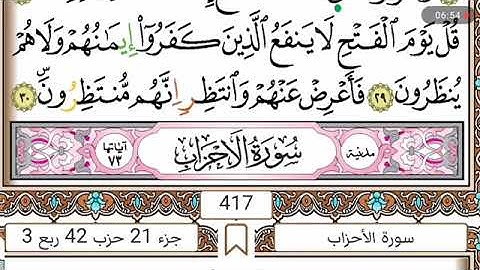 06:54
قُلْ يَوْمَ ٱلْفَتْحِ لَا يَنفَعُ ٱلَّذِينَ كَفَرُوٓا۟ إِيمَـٰنُهُمْ وَلَا هُمْ
يُنظَرُونَ ٢٩ فَأَعْرِضْ عَنْهُمْ وَٱنتَظِرْ إِنَّهُم مُّنتَظِرُونَ ٣٠
مدنية سُورَةُ الأَحْزَابِ آياتها ٧٣
417
سورة الأحزاب جزء 21 حزب 42 ربع 3